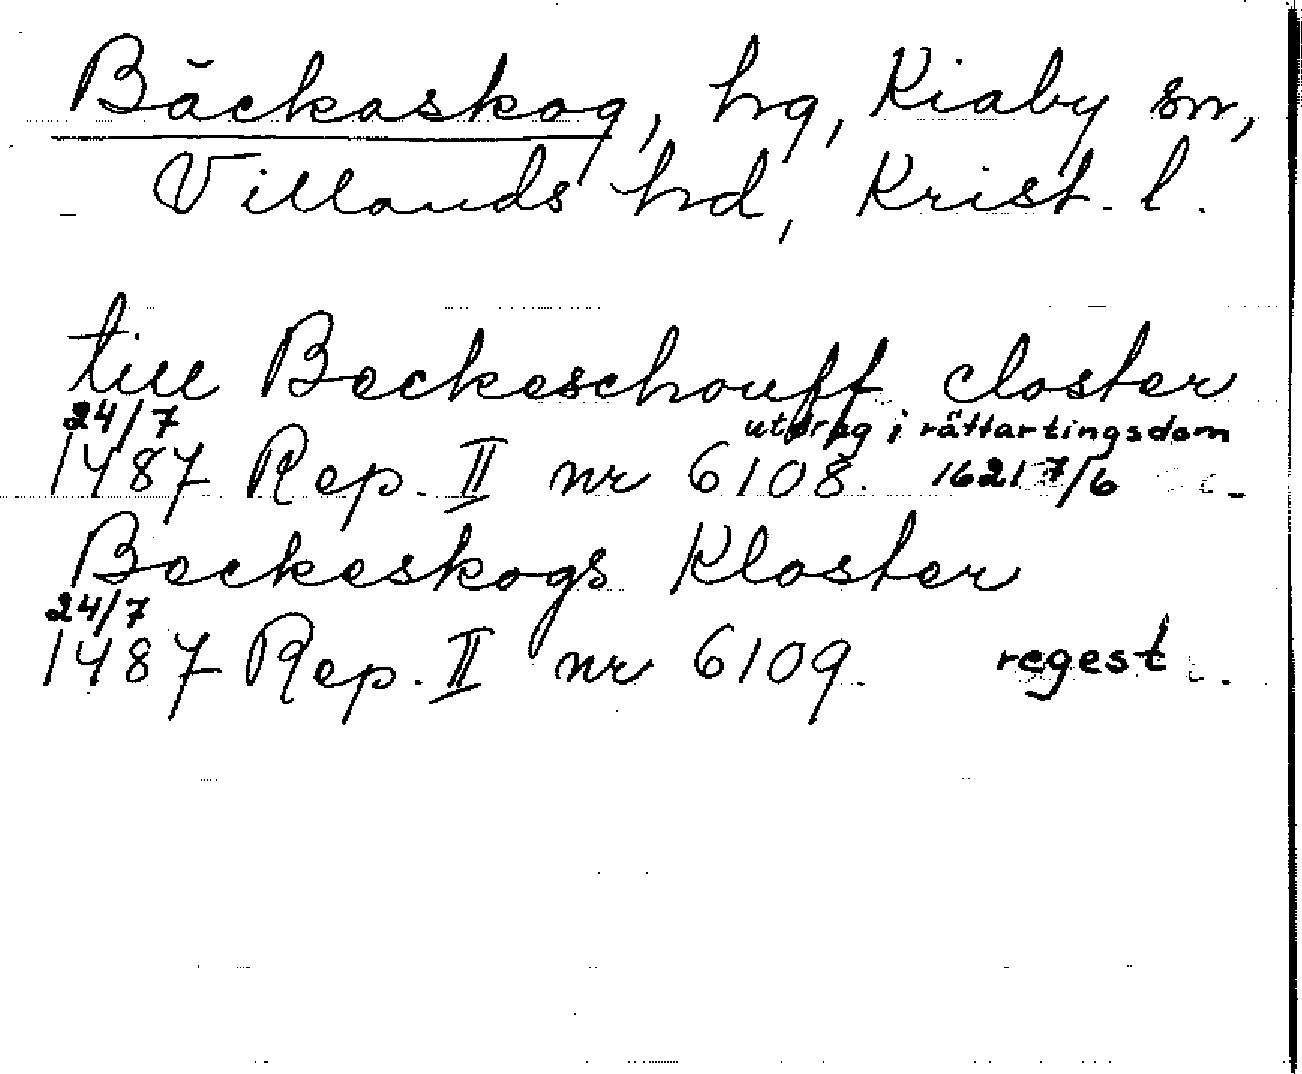 Bäckaskog, hg, Kiaby sn,
Villands hd, Krist. l.
till Beckeschouff closter
24/7 utdrag i rättartingsdom
1487 Rep. II nr 6108. 1621 7/6
Beckeskogs Kloster
24/7
1487 Rep. II nr 6109. regest